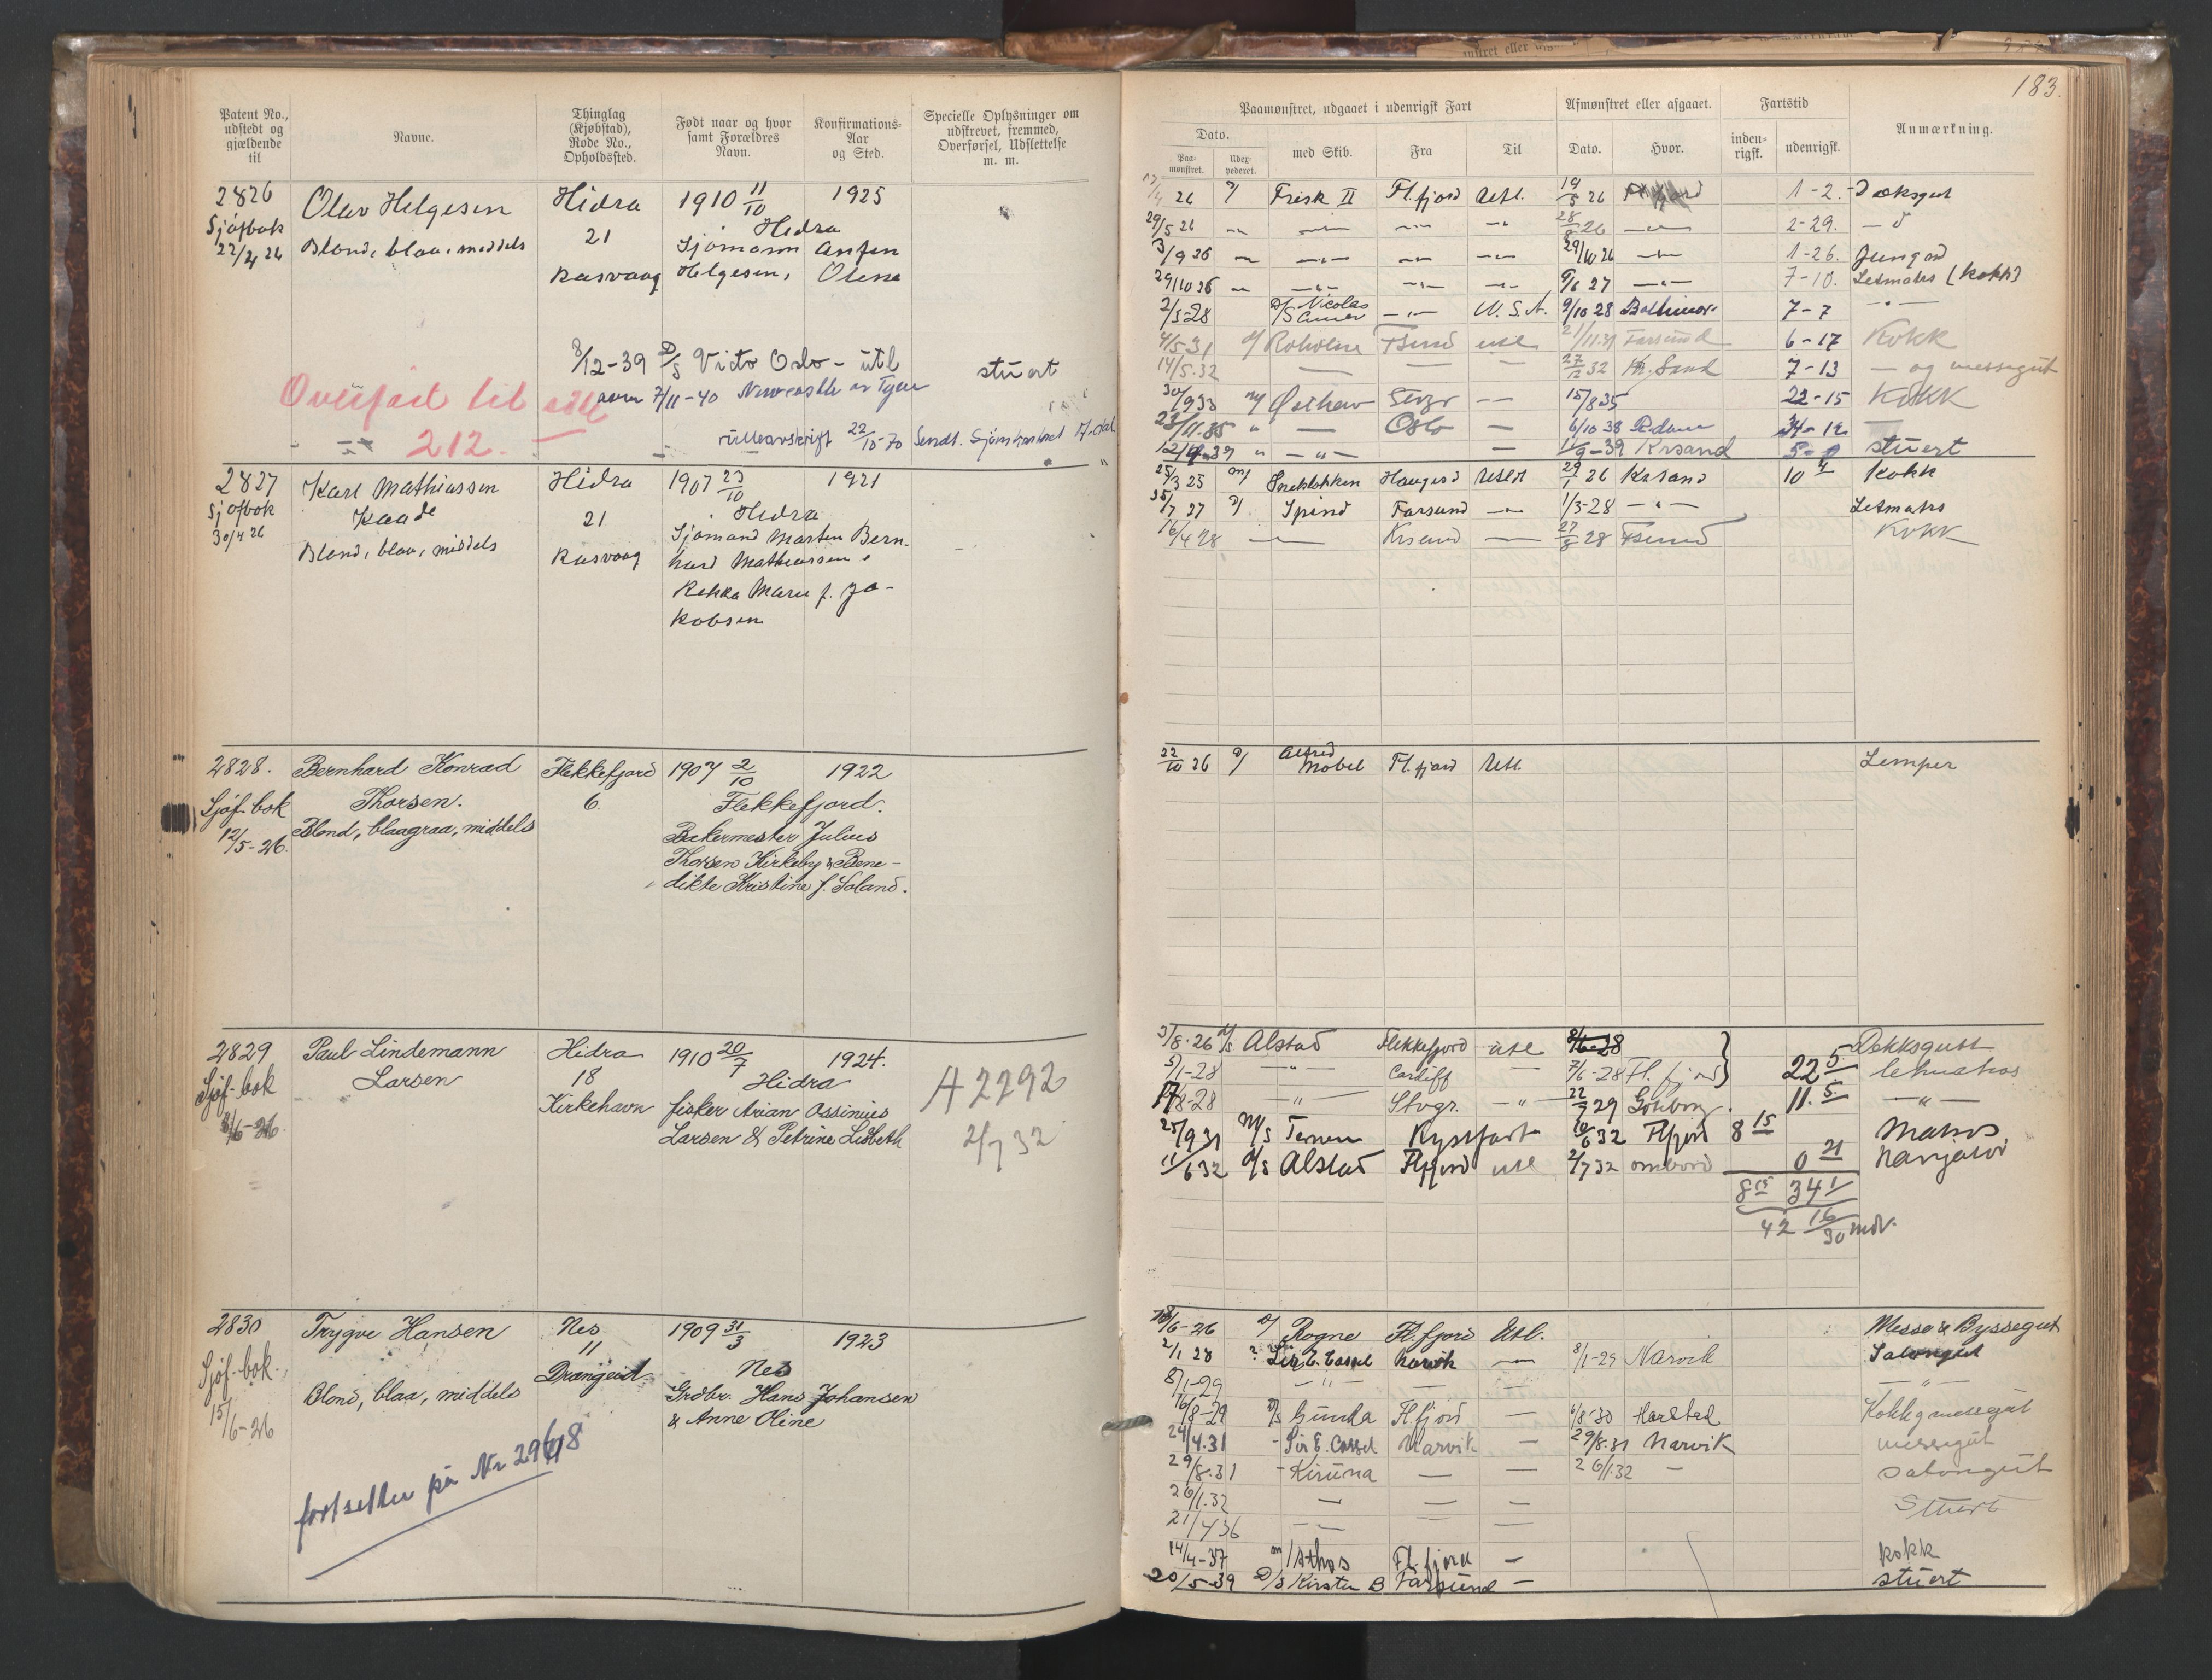 183.
Patent No., udstedt og gjældende til
Navne.
Thinglag (Kjøbstad), Rode No., Opholdssted.
Født naar og hvor samt Forældres Navn.
Konfirmations-Aar og Sted.
Specielle Oplysninger om udskrevet, fremmed, Overførsel, Udslettelse m. m.
Paamønstret, udgaaet i udenrigsk Fart
Afmønstret eller afgaaet.
Fartstid
Anmærkning.
Dato.
Paa-mønstret.
Udex-pederet.
med Skib.
Fra
Til
Dato.
Hvor.
inden-rigsk.
udenrigsk.
2826 Olav Helgesen Hidra 1910 11/10 1925
Sjøfbok Hidra
22/4 26 Blond, blaa, middels 21 Sjømann Anfin
Rasvaag Helgesen, Olena
8/12-39 D/S Victo Oslo - utl stuert
7/11-40 Newcastle on Tyne
Overført til
212.
rulleavskrift 22/10-70 Sendt.
2827 Karl Mathiassen Hidra 1907 23/10 1921
Sjøfbok Kaade Hidra
30/4 26 21 Sjømand Marten Bern-
Blond, blaa, middels Rasvaag hard Mathiassen &
Rekka Marie f. Ja-
kobsen
2828. Bernhard Konrad Flekkefjord 1907 2/10 1922
Sjøf-bok Thorsen. 6. Flekkefjord.
12/5-26. Blond, blaagraa, middels Bakermester Julius
Thorsen Kirkeby & Bene-
dikte Kristine f. Soland.
2829 Paul Lindemann Hidra 1910 20/7 1924.
Sjøf-bok Larsen 18 Hidra A 2292
Kirkehavn fisker Arian Ossinius
Larsen & Petrine Lisbeth 2/7 32
2830 Trygve Hansen Nes 1909 31/3 1923
Sjøf-bok. 11 Nes
Drangeid
15/6-26 Blond, blaa, middels Grdbr. Hans Johansen
& Anne Oline
fortsetter på Nr
26 D/ Frisk II Fl.fjord Utl. 19/5 26 1-2. Dæksgut
29/5 26 28/8 26 2-29.
3/9 26 29/10 26 1-26. Jungmd
29/10 26 9/6 27 7-10. Letmatrs (Kokk)
2/3-28 D/S Nicolas U.S.A. 9/10 28 Baltimor. 7-7
4/5 31 Fsund utl 21/11.31 Farsund 6-17 Kokk
14/5.32 27/12 32 Kr. Sand 7-13 og messegut
30/9 33 M/ Østhav 15/8 35 22-15 Kokk
23/11.35 Oslo 6/10 38
39 Krsand stuert
25/3 25 M/ Sneklokken Haugesd Utldt 29/1 26 Krsand 10 4 Kokk
27 D/ Spind Farsund 1/3-28 Letmatrs
16/4 28 Krsand 27/8 28 Fsund Kokk
22/10 26 D/ Alfred Nobel Fl.fjord Utl. Lemper
3/8-26 D/S Alstad Flekkefjord utl Dekksgutt
5/1-28 Cardiff 7/6-28 Fl. fjord 22 5 letmatros
8-28 Stvgr. 22/7 29 Göteborg. 11. 5
25/9 31 M/S Ternen Kystfart 10/6 32 Flfjord 8 15 Matros
11/6 32 D/S Alstad Flfjord utl 2/7 32 ombord 0 21
8 15 34 1
42 16/30 md.
6-26 D/ Rogne Fl.fjord Utl. Messe & Byssegut
2/1 28 Sir E. Cassel Narvik 8/1-29 Narvik Salongut
8/1-29
16/8-29 D/S Gunda Fl.fjord 6/8-30 Harstad
24/4.31 Sir E. Cassel Narvik 29/8.31 Narvik messegut
29/8.31 Kiruna 26/1.32 salongut
26/1.32 Stuert
21/4 36
14/4-37 M/ Athos Fl.fjord kokk
20/5-39 D/S Kirsten B Farsund stuert